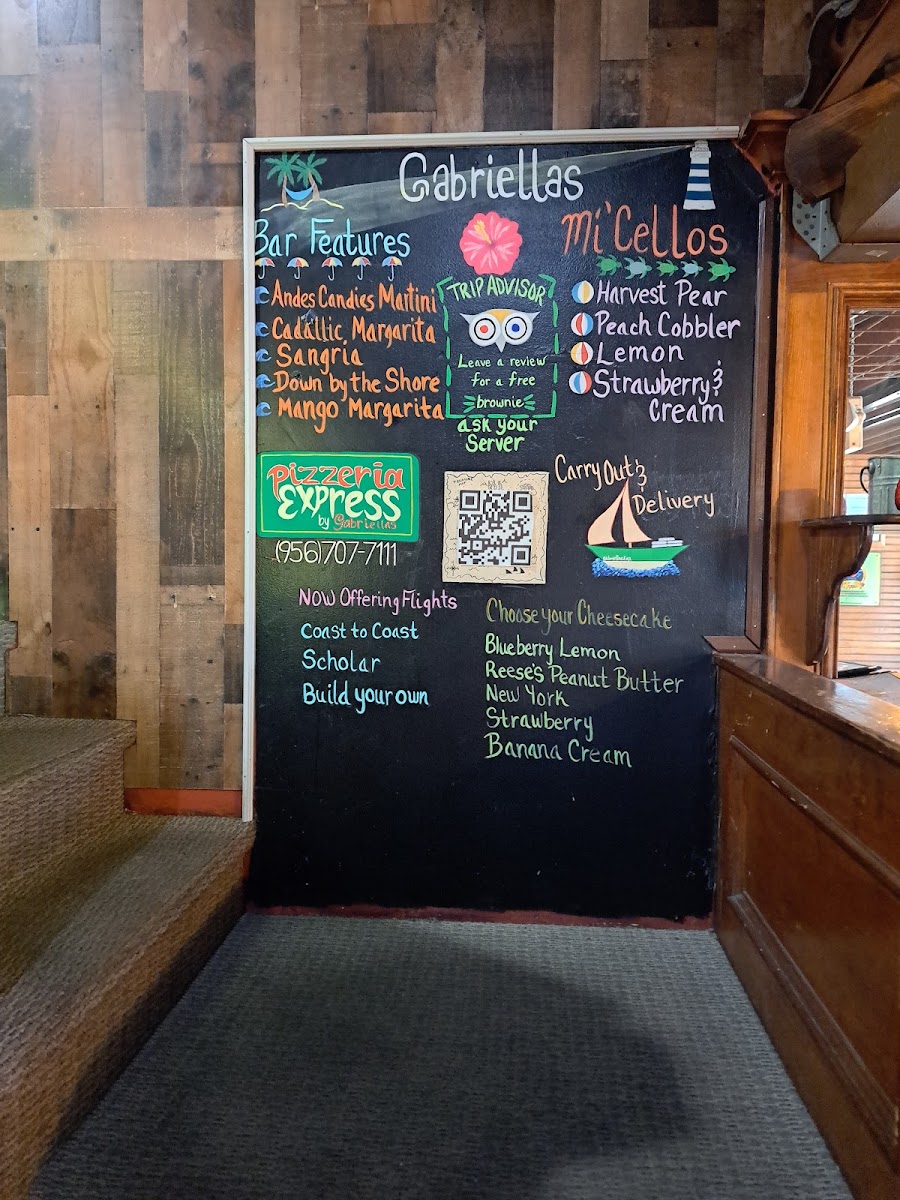 Gabriellas
Bar Features
Andes Candies Martini
Cadallic Margarita
Sangria
Down by the Shore
Mango Margarita
TRIPADVISOR
Leave a review
for a free
brownie
ask your
Server
Mi'Cellos
Harvest Pear
Peach Cobbler
Lemon
Strawberry &
Cream
Pizzeria
Express
by Gabriellas
(956)707-7111
Carry Out &
Delivery
NOW Offering Flights
Coast to Coast
Scholar
Build your own
Choose your Cheesecake
Blueberry Lemon
Reese's Peanut Butter
New York
Strawberry
Banana Cream